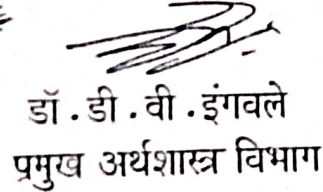 डॉ. डी. वी. इंगवले
प्रमुख अर्थशास्त्र विभाग